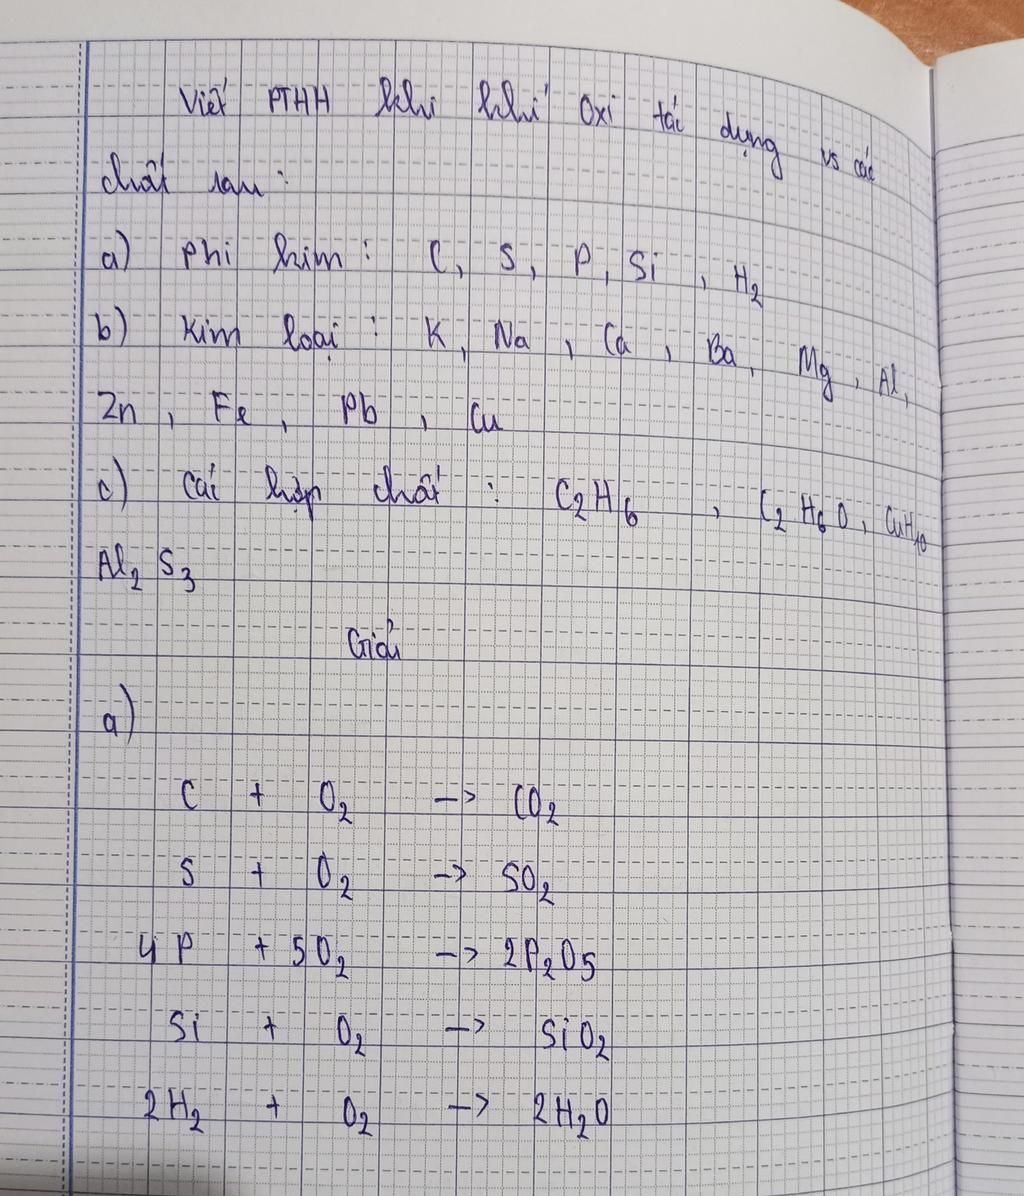 Viết PTHH khi khí Oxi tác dụng vs các
chất sau:
a) Phi kim: C, S, P, Si, H2
b) Kim loại: K, Na, Ca, Ba, Mg, Al,
Zn, Fe, Pb, Cu
c) Các hợp chất: C2H6, C2H6O, C4H10
Al2S3
Giải
a)
C + O2 -> CO2
S + O2 -> SO2
4P + 5O2 -> 2P2O5
Si + O2 -> SiO2
2H2 + O2 -> 2H2O